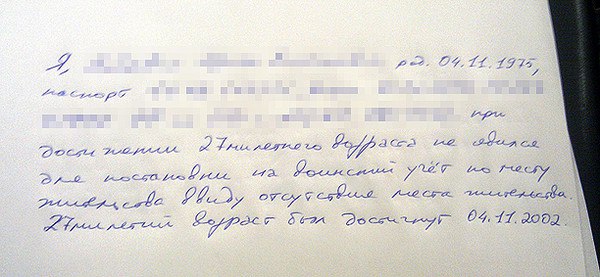 Я, род. 04.11.1975,
паспорт
при
достижении 27милетнего возраста не явился
для постановки на воинский учёт по месту
жительства ввиду отсутствия места жительства.
27милетий возраст был достигнут 04.11.2002.